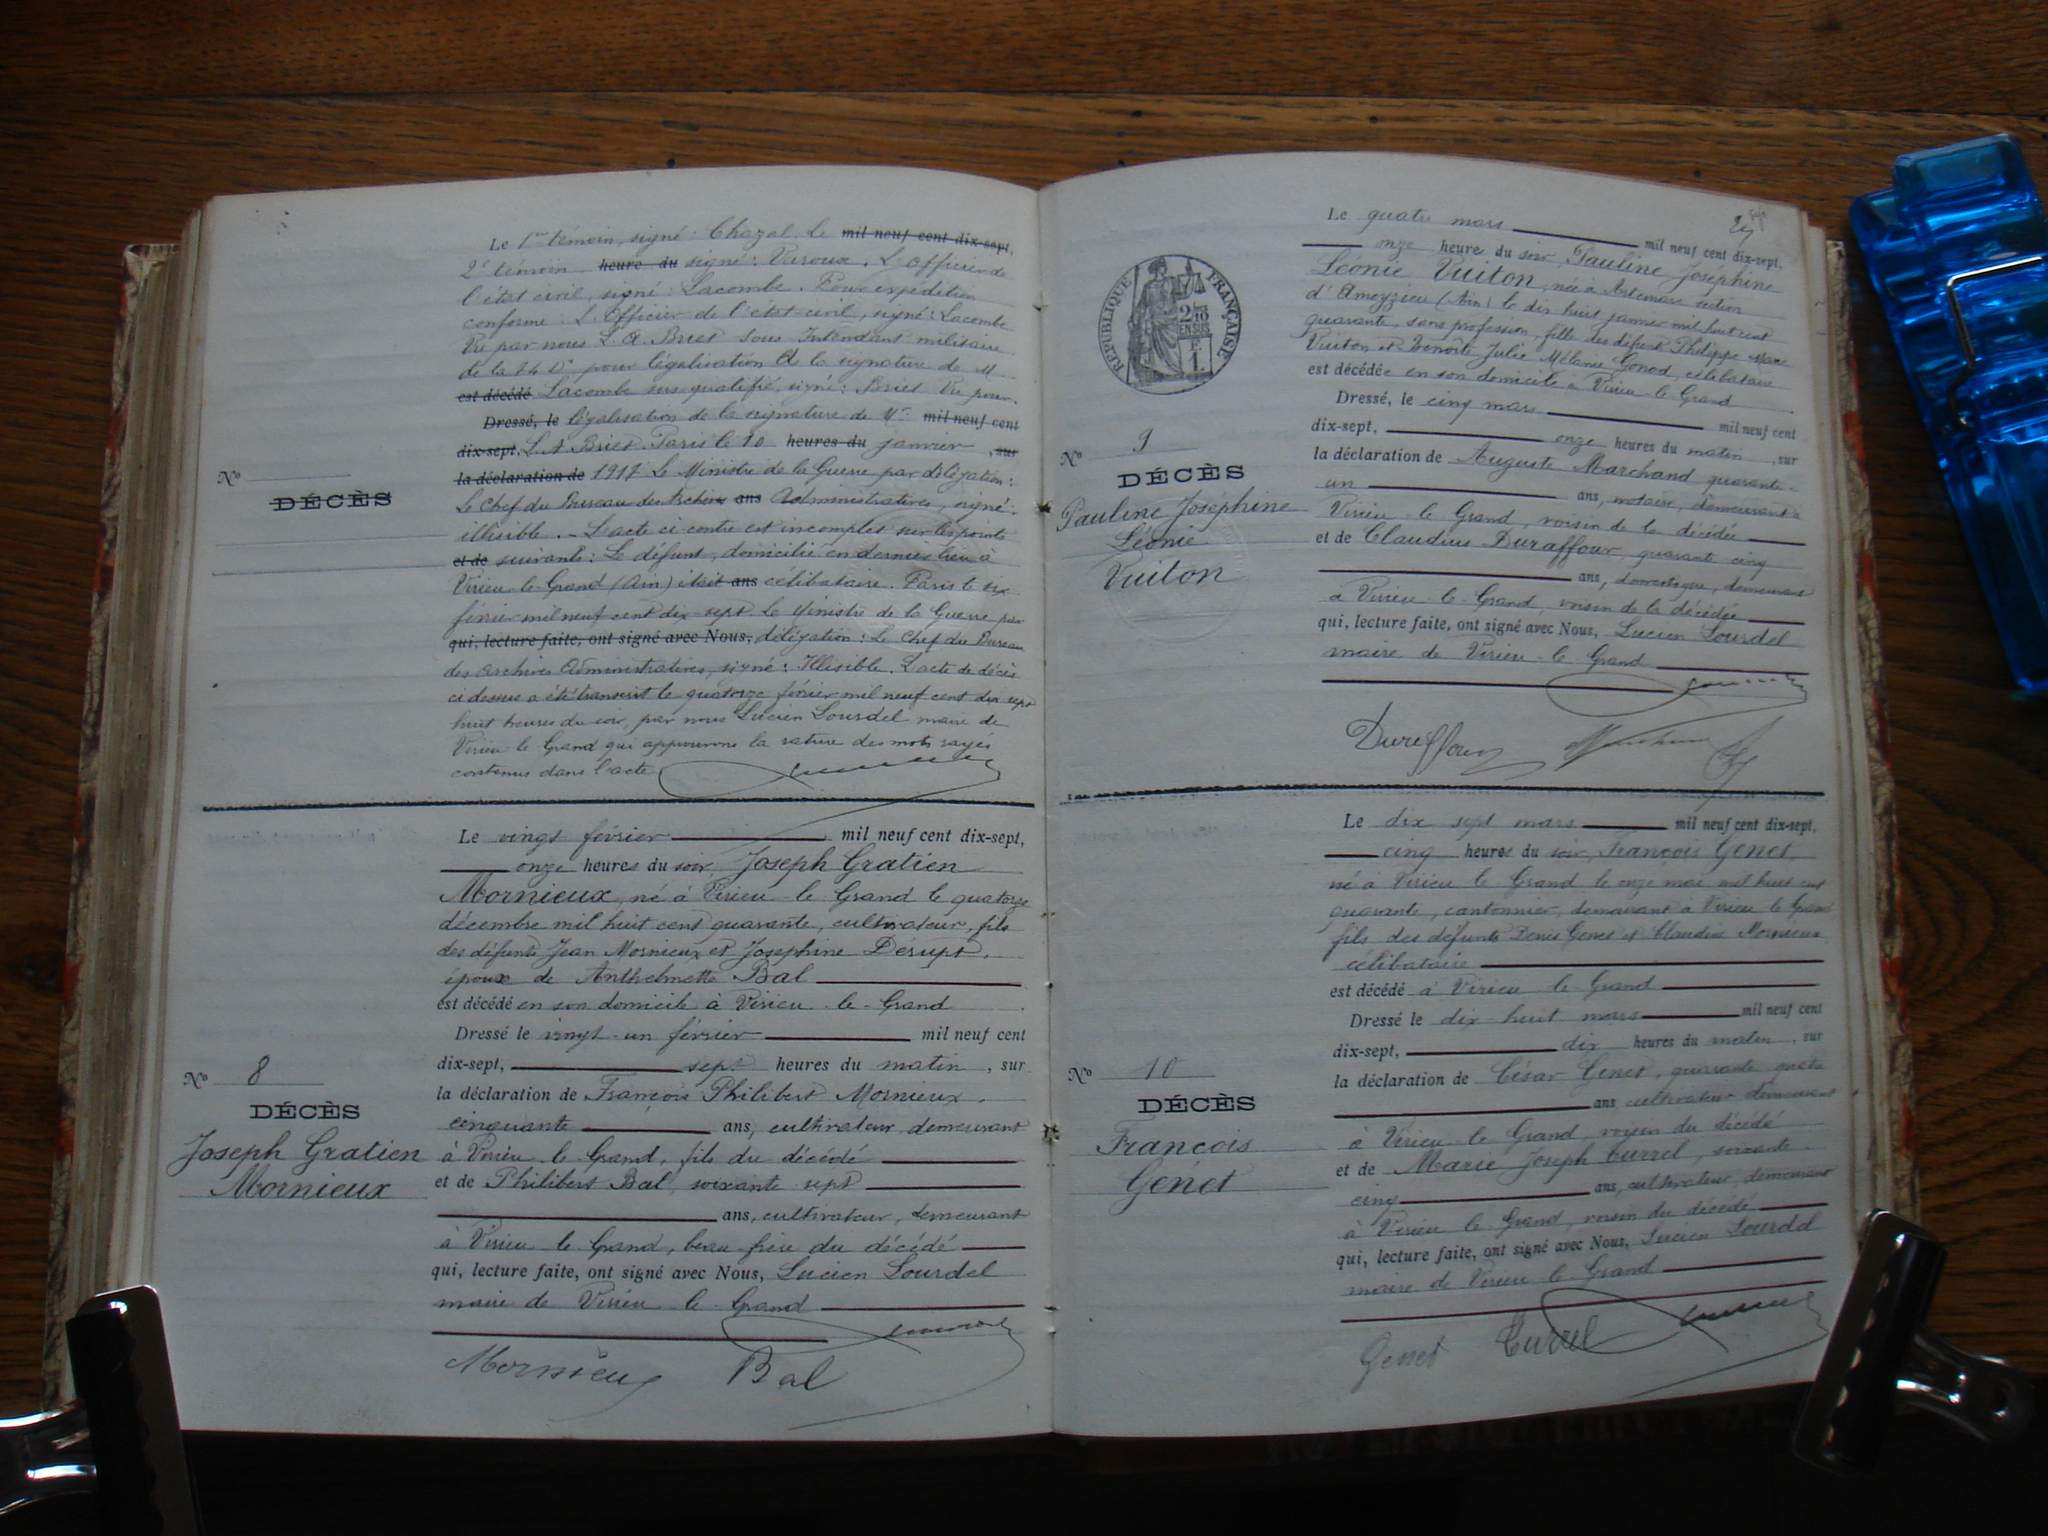 Le 1er témoin, signé : Chazal. Le mil neuf cent dix-sept,
2e témoin heure du signé : Varoux. L'officier de
l'état civil, signé : Lacombe. Pour expédition
conforme L'Officier de l'état civil, signé : Lacombe
Vu par nous L. A. Briet Sous Intendant militaire
de la pour légalisation de la signature de M
est décédé Lacombe sus qualifié, signé : Briet Vu pour
Dressé, le légalisation de la signature de Mr mil neuf cent
dix-sept, L. A Briet. Paris le 10 heures du janvier , sur
la déclaration de 1917 Le Ministre de la Guerre par délégation :
Le Chef du Bureau des Archives ans Administratives, signé :
illisible. - L'acte ci contre est incomplet sur les points
et de suivants : Le défunt, domicilié en dernier lieu à
Virieu le Grand (Ain) était ans célibataire. Paris le six
février mil neuf cent dix sept. Le Ministre de la Guerre par
qui, lecture faite, ont signé avec Nous, délégation : Le Chef du Bureau
des Archives Administratives, signé : Illisible. L'acte de décès
ci dessus a été transcrit le quatorze février mil neuf cent dix sept
huit heures du soir, par nous Lucien Lourdel maire de
Virieu le Grand qui approuvons la rature des mots rayés
contenus dans l'acte
No
DÉCÈS
Le vingt février mil neuf cent dix-sept,
onze heures du soir, Joseph Gratien
Mornieux, né à Virieu le Grand le quatorze
décembre mil huit cent quarante, cultivateur, fils
des défunts Jean Mornieux et Josephine Dérupt,
époux de Anthelmette Bal
est décédé en son domicile à Virieu le Grand
Dressé le vingt-un février mil neuf cent
dix-sept, sept heures du matin, sur
la déclaration de François Philibert Mornieux,
cinquante ans, cultivateur demeurant
à Virieu le Grand, fils du décédé
et de Philibert Bal, soixante sept
ans, cultivateur, demeurant
à Virieu le Grand, beau frère du décédé
qui, lecture faite, ont signé avec Nous, Lucien Lourdel
maire de Virieu le Grand
Mornieux Bal
No 8
DÉCÈS
Joseph Gratien
Mornieux
RÉPUBLIQUE FRANÇAISE
2/10
EN SUS
F.
1.
Le quatre mars mil neuf cent dix-sept,
onze heure du soir, Pauline Joséphine
Léonie Vuiton, née à Artemare section
d'Ameyzieu (Ain) le dix huit janvier mil huit cent
quarante, sans profession, fille des défunts Philippe Marc
Vuiton et Benoîte Julie Mélanie Gonod, célibataire
est décédée en son domicile à Virieu le Grand
Dressé, le cinq mars mil neuf cent
dix-sept, onze heures du matin, sur
la déclaration de Auguste Marchand quarante-
un ans, notaire, demeurant à
Virieu le Grand, voisin de la décédée
et de Claudius Duraffour, quarante cinq
ans, domestique, demeurant
à Virieu le Grand, voisin de la décédée
qui, lecture faite, ont signé avec Nous, Lucien Lourdel
maire de Virieu le Grand
Duraffour
No 9
DÉCÈS
Pauline Joséphine
Léonie
Vuiton
Le dix sept mars mil neuf cent dix-sept,
cinq heures du soir, François Genet,
né à Virieu le Grand le onze mai mil huit cent
quarante, cantonnier, demeurant à Virieu le Grand
fils des défunts Denis Genet et Claudine Mornieux
célibataire
est décédé à Virieu le Grand
Dressé le dix-huit mars mil neuf cent
dix-sept, dix heures du matin, sur
la déclaration de César Genet, quarante
ans, cultivateur demeurant
à Virieu le Grand voisin du décédé
et de Marie Joseph Currel, soixante
cinq ans, cultivateur, demeurant
à Virieu le Grand, voisin du décédé
qui, lecture faite, ont signé avec Nous, Lucien Lourdel
maire de Virieu le Grand
Genet Curel
No 10
DÉCÈS
François
Genet